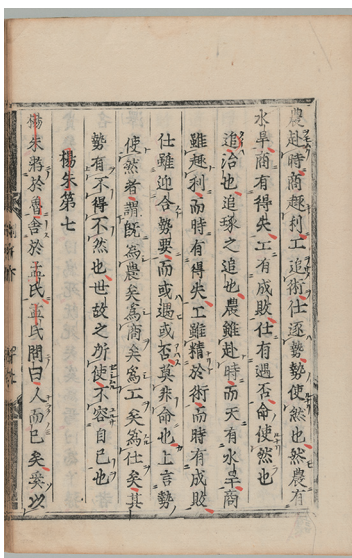 農赴時商趣利工追術仕逐勢勢使然也然農有
水旱商有得失工有成敗仕有遇否命使然也
追治也追琢之追也農雖赴時而天有水旱商
雖趣利而時有得失工雖精於術而時有成敗
仕雖迎合勢要而或遇或否莫非命也上言勢
使然者謂既為農矣為商矣為工矣為仕矣其
勢有不得不然也世故之所使不容自已也
楊朱第七
楊朱游於魯舍於孟氏孟氏問曰人而已矣奚以